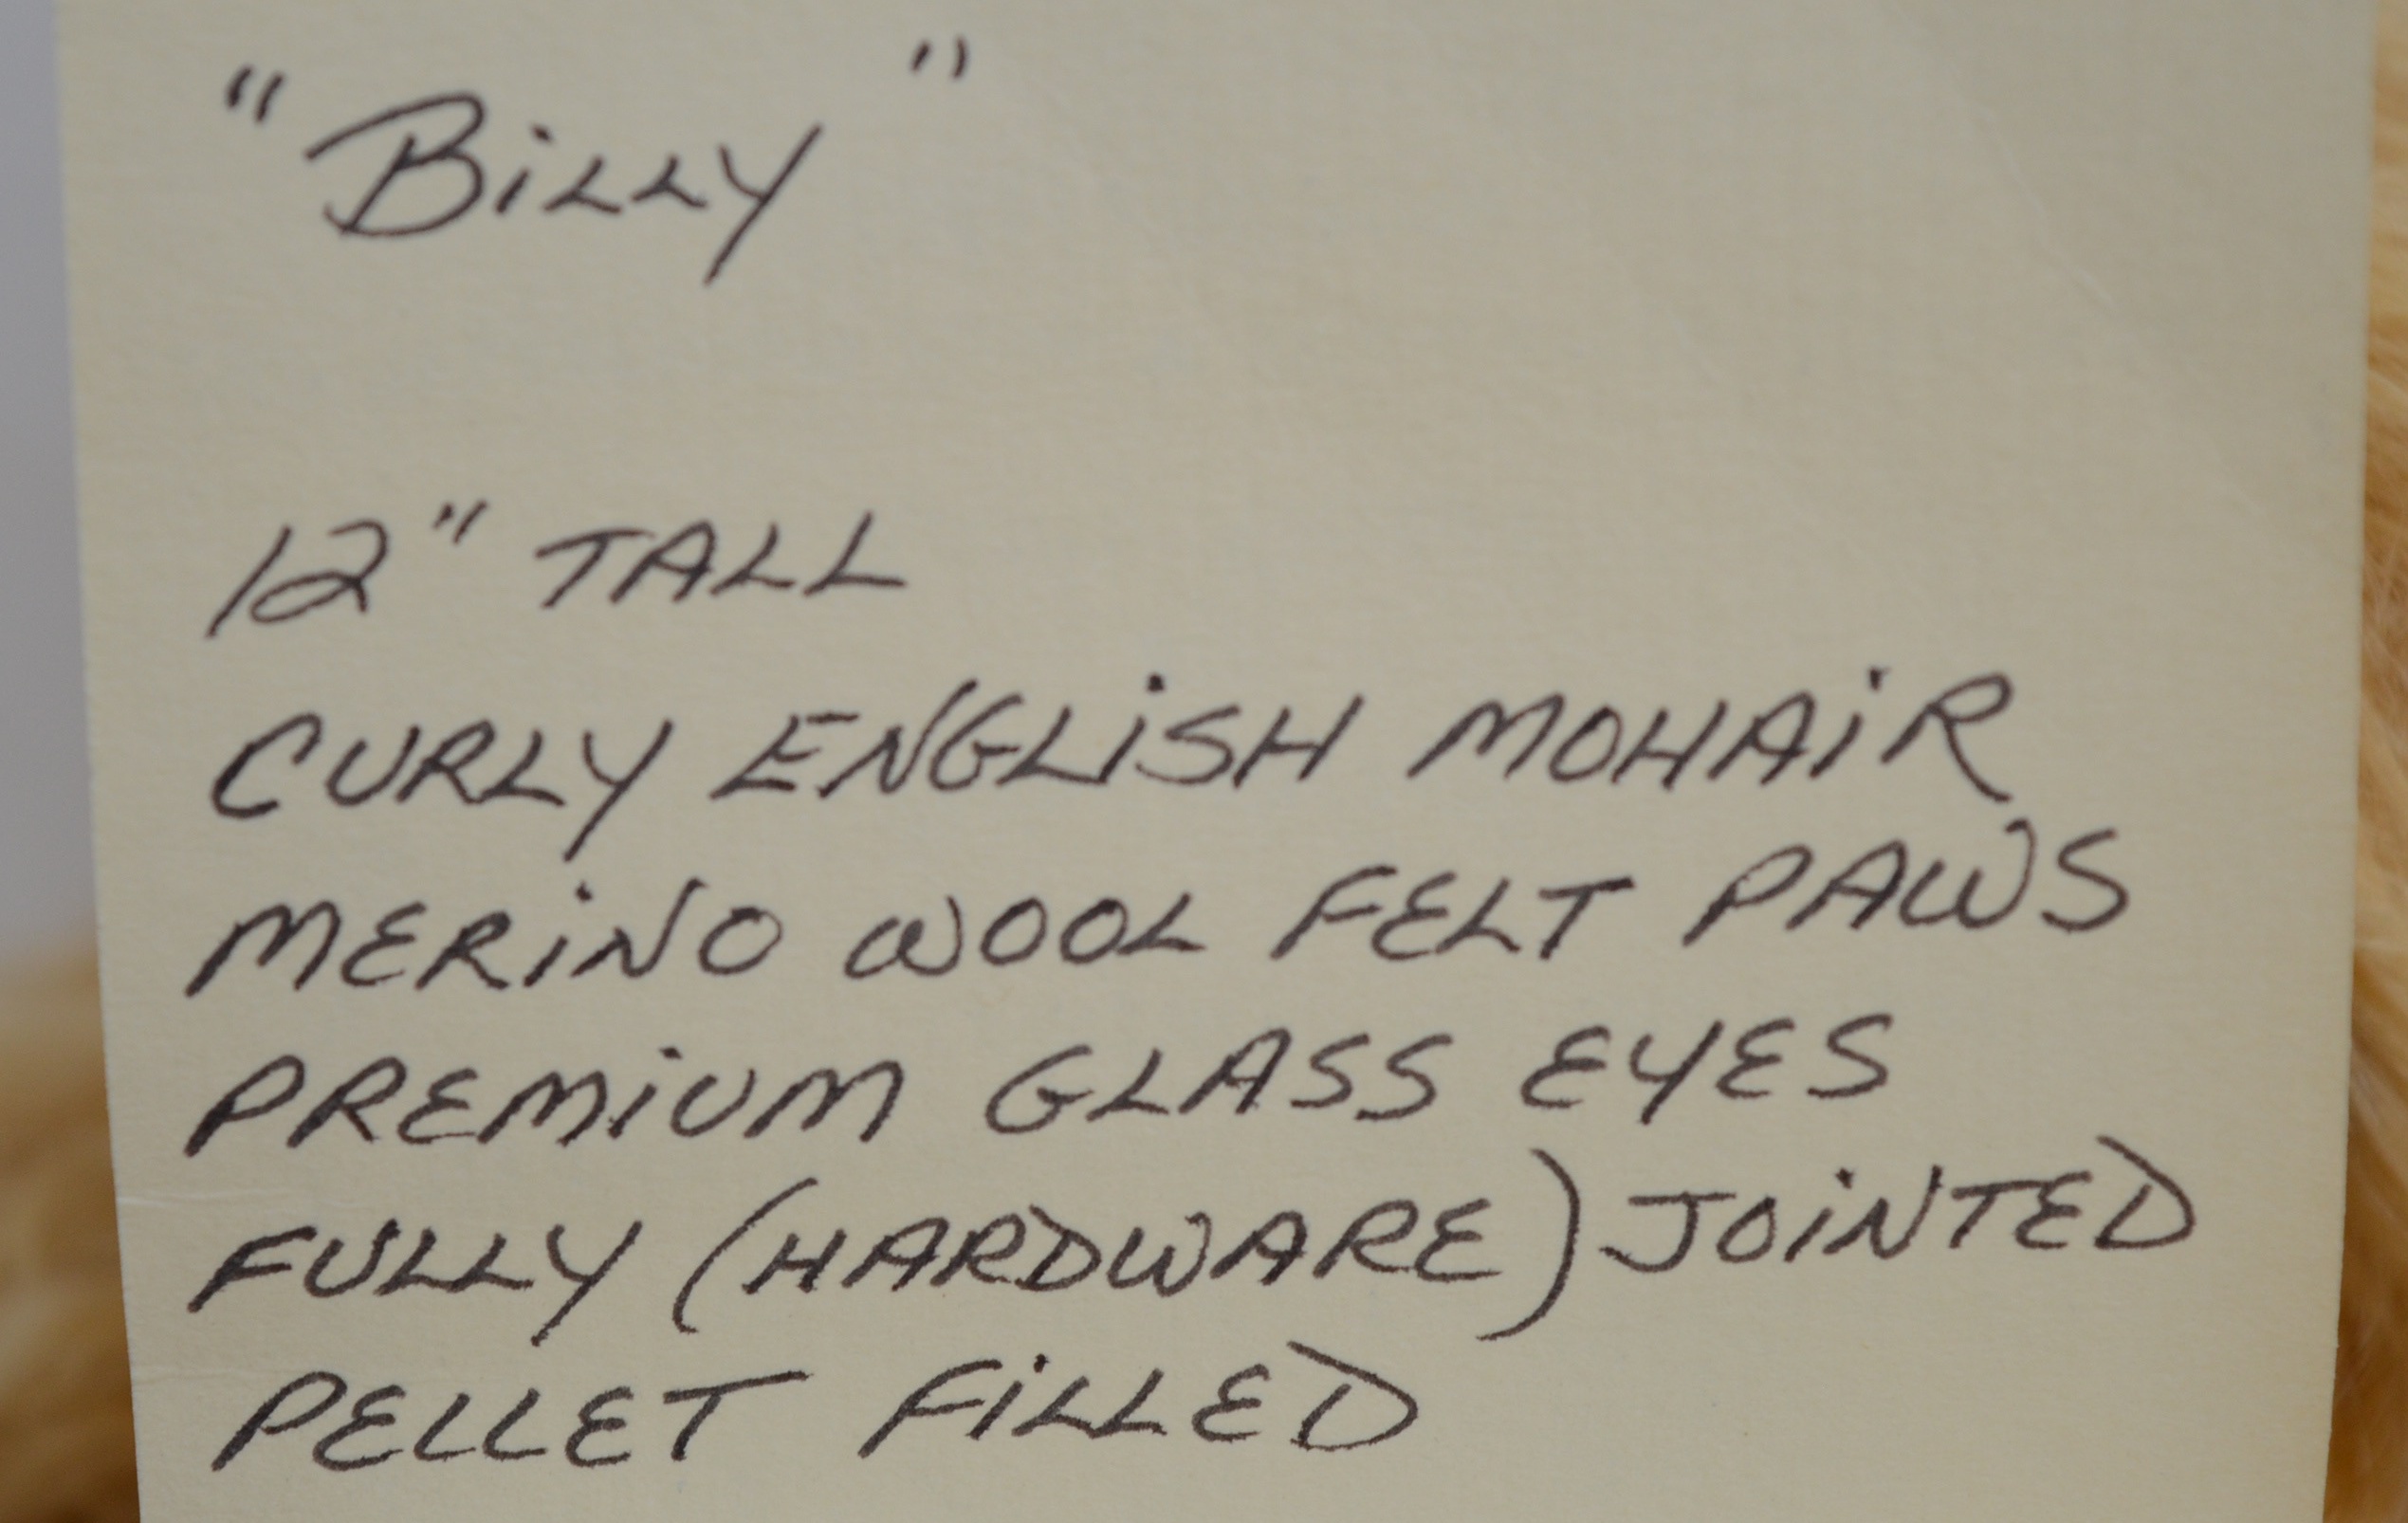 "Billy"
12" TALL
CURLY ENGLiSH MOHAiR
MERiNO WOOL FELT PAWS
PREMiUM GLASS EYES
FULLY (HARDWARE) JOiNTED
PELLET FiLLED